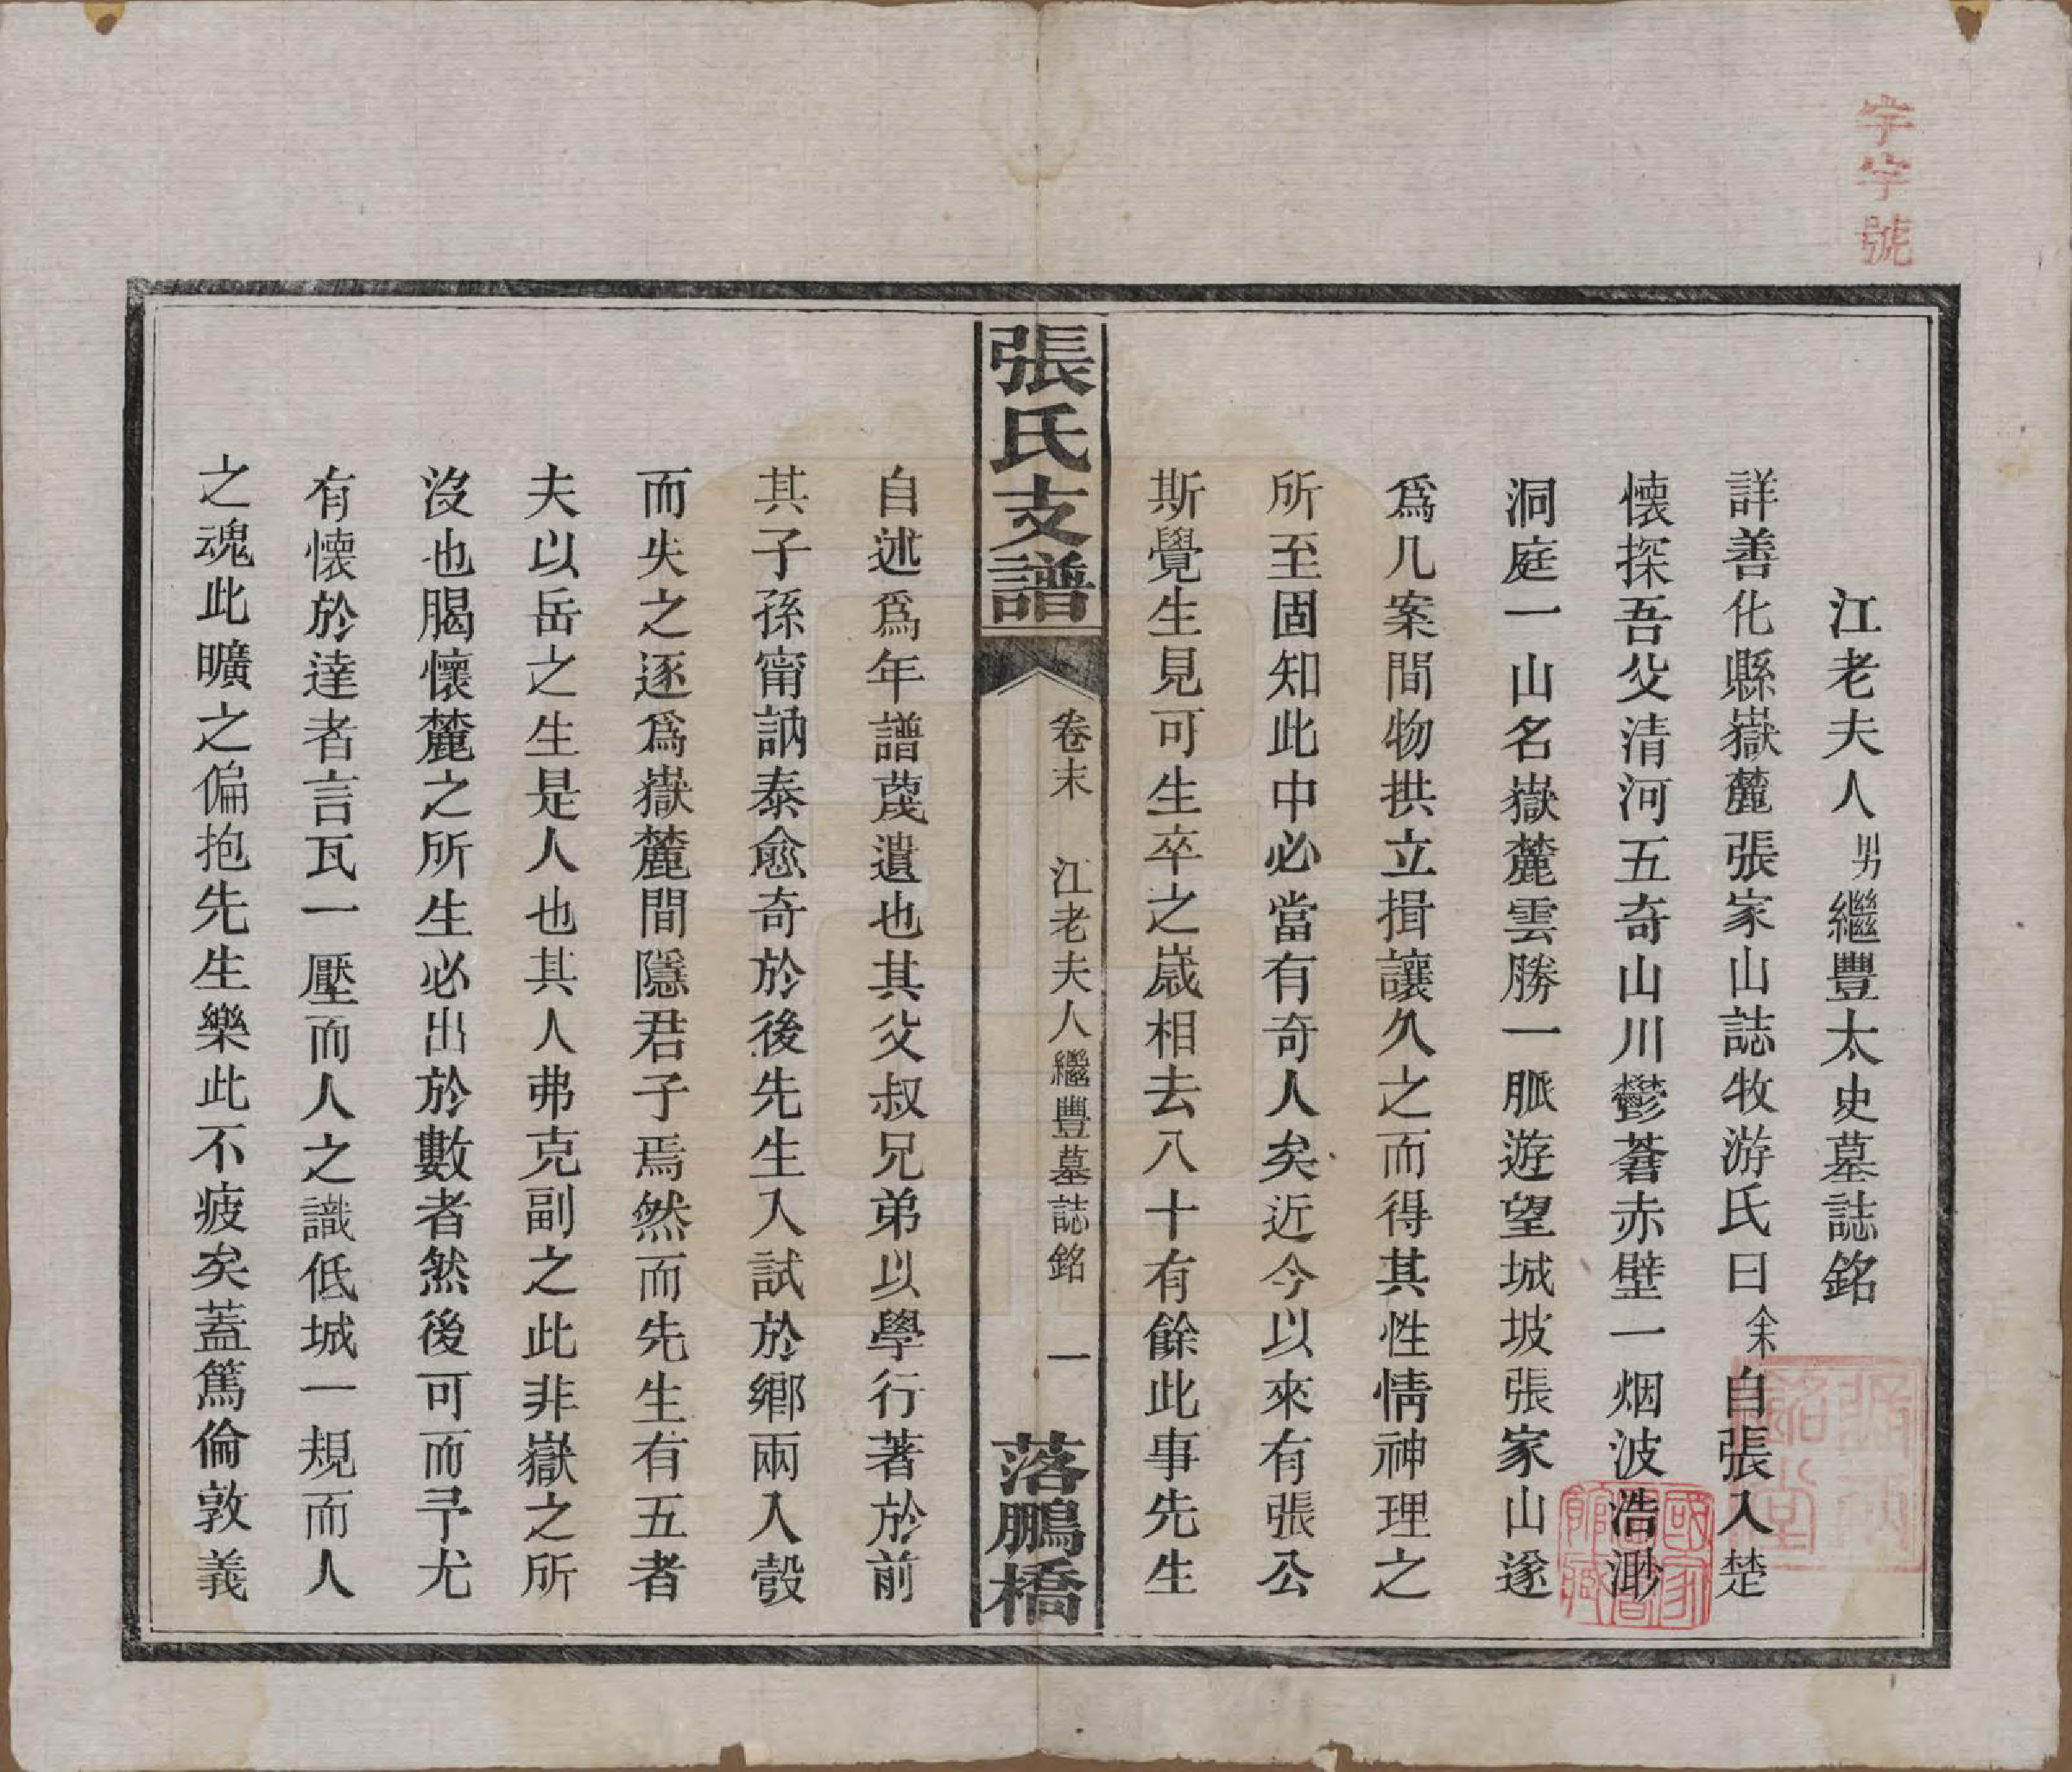 字字號
江老夫人男繼豐太史墓誌銘
詳善化縣嶽麓張家山誌牧游氏曰余末自張入楚
懐探吾父清河五奇山川鬱蒼赤壁一烟波浩渺
洞庭一山名嶽麓雲勝一脈遊望城坡張家山遂
爲几案間物拱立揖讓久之而得其性情神理之
所至固知此中必當有奇人矣近今以來有張公
斯覺生見可生卒之歲相去八十有餘此事先生
張氏支譜
卷末 江老夫人繼豐墓誌銘 一
落鵬橋
自述爲年譜蔑遺也其父叔兄弟以學行著於前
其子孫甯訥泰愈奇於後先生入試於鄉兩入彀
而失之逐爲嶽麓間隱君子焉然而先生有五者
夫以岳之生是人也其人弗克副之此非嶽之所
沒也朅懷麓之所生必出於數者然後可而予尤
有懐於達者言瓦一壓而人之識低城一規而人
之魂此曠之偏抱先生樂此不疲矣蓋篤倫敦義
國家圖書館藏